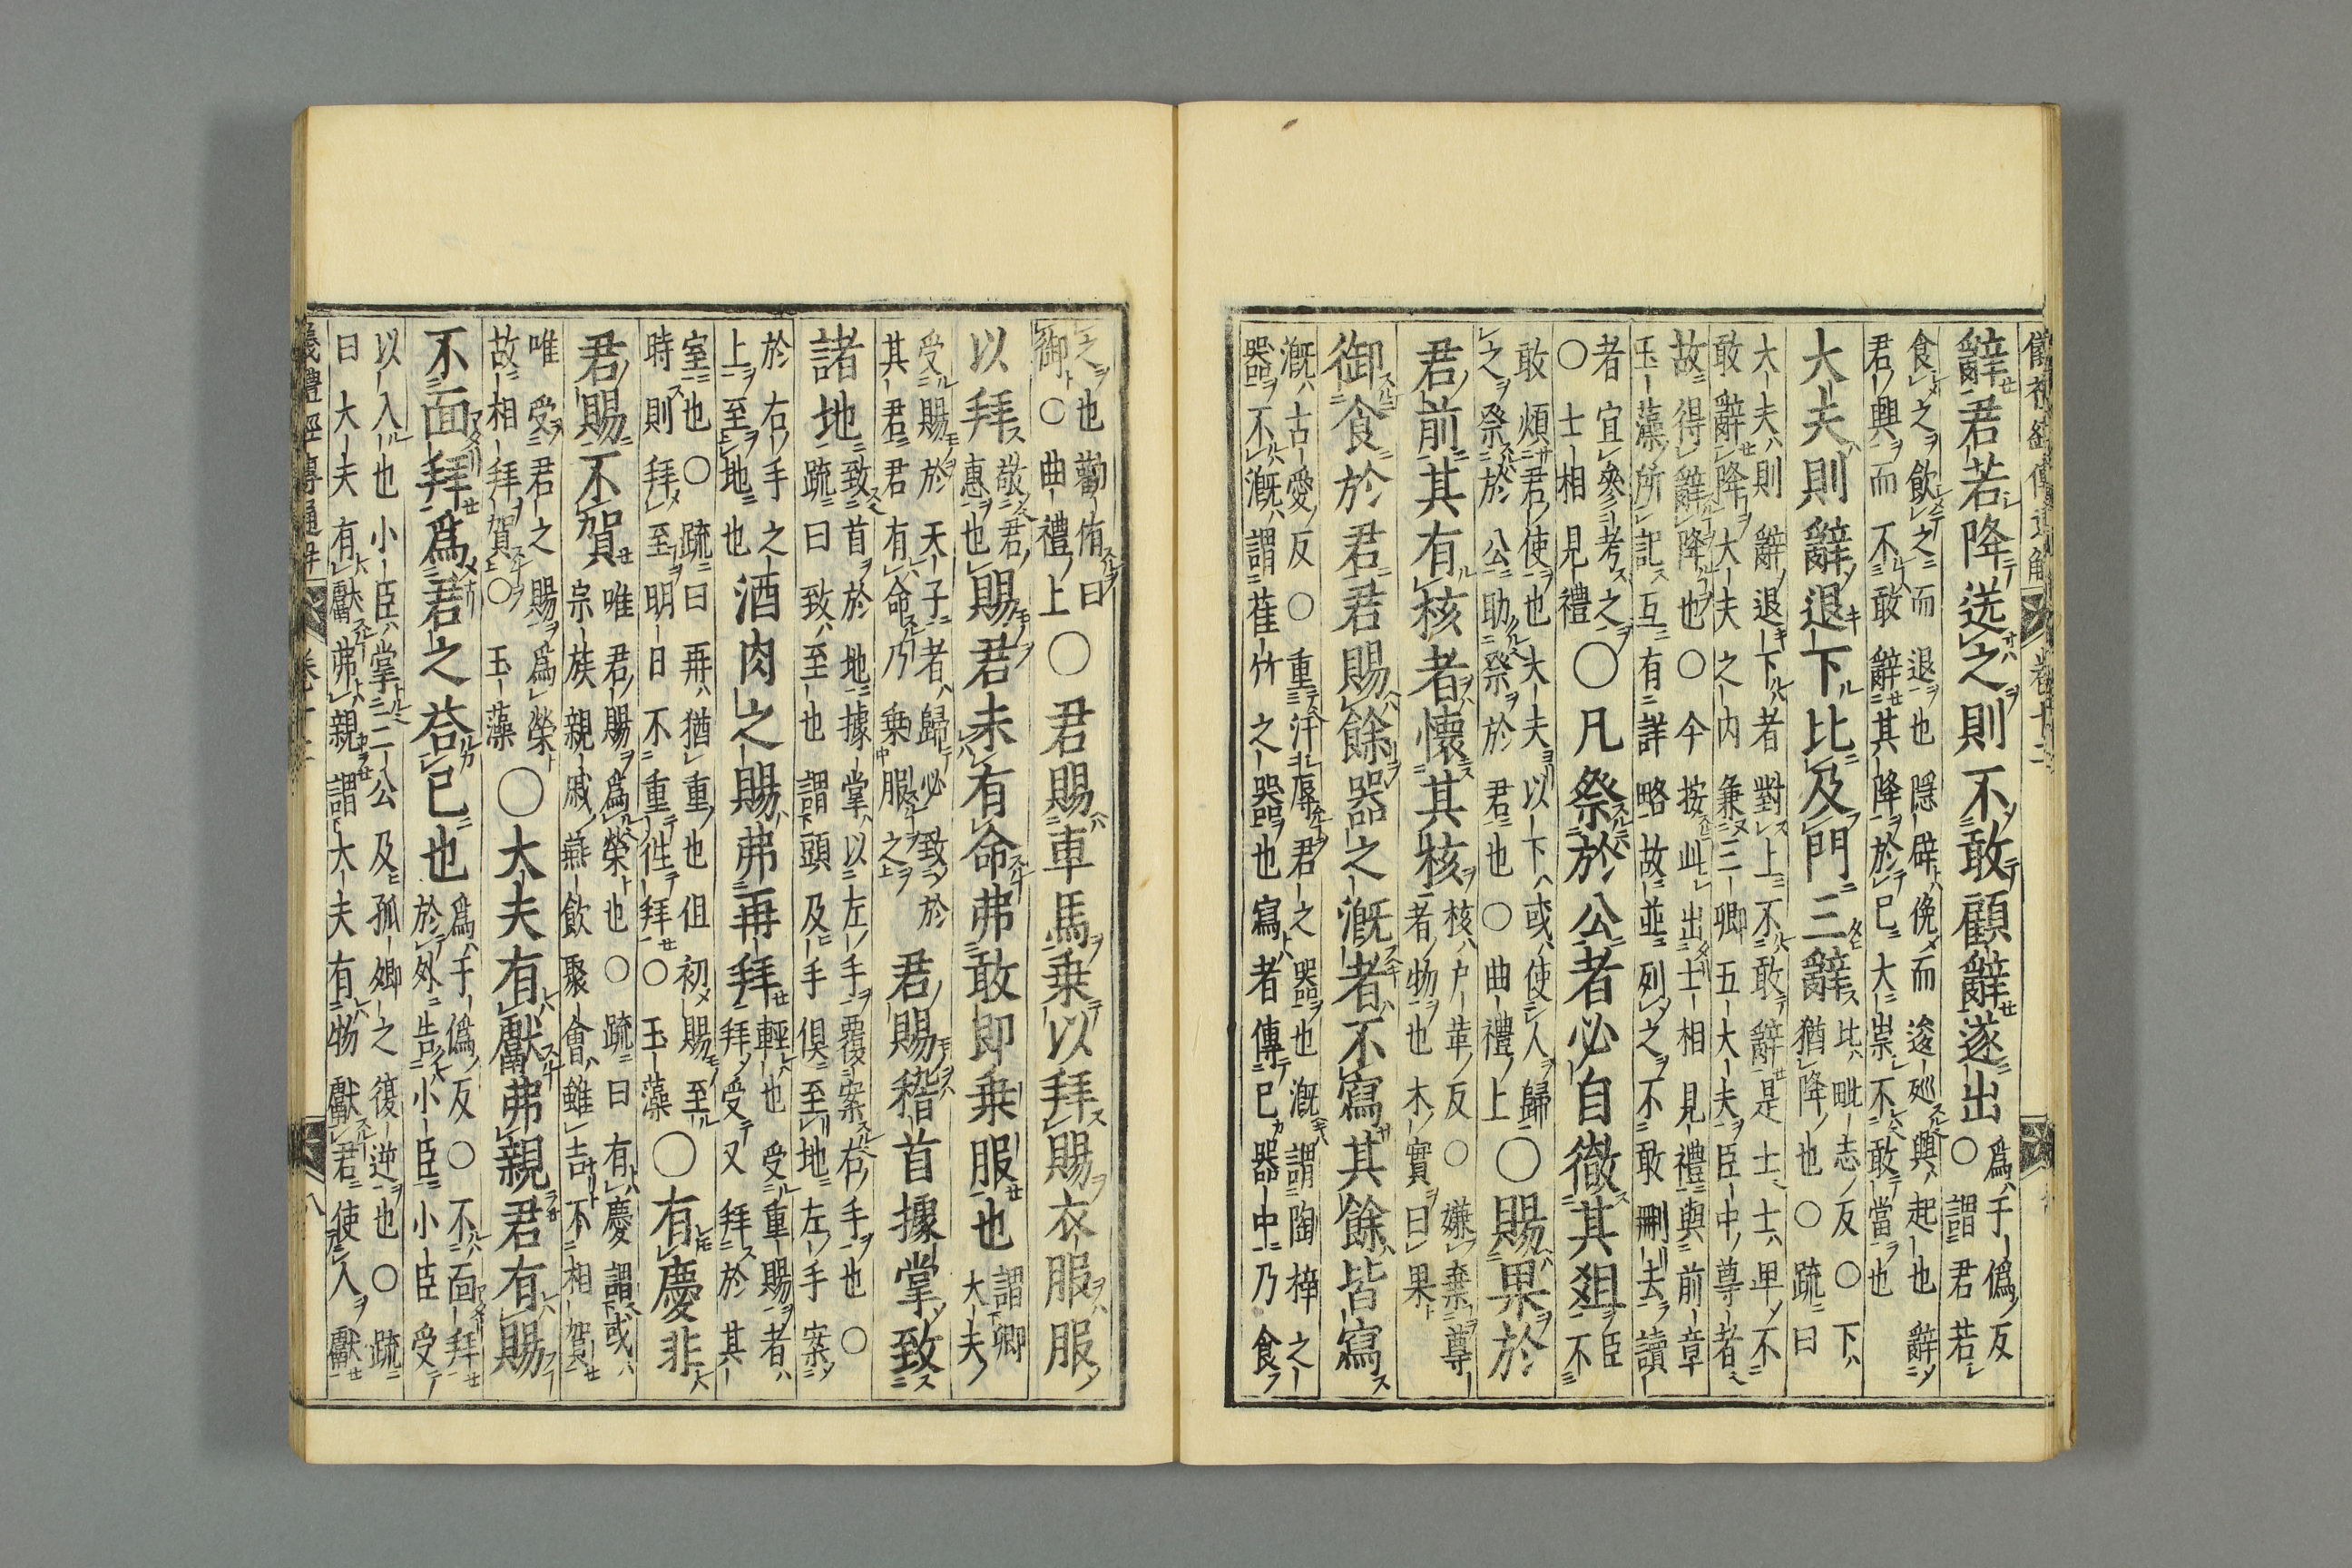 儀禮經傳通解　卷十二
辭君若降送之則不敢顧辭遂出爲于僞反
○謂君若
食之飲之而退也隱辟俛而逡巡興起也辭
君興而不敢辭其降於已大崇不敢當也
大夫則辭退下比及門三辭比毗志反○下
猶降也○疏曰
大夫則辭退下者對上不敢辭是士士卑不
敢辭降大夫之內兼三卿五大夫臣中尊者
故得辭降也○今按此出士相見禮與前章
玉藻所記互有詳略故並列之不敢刪去讀
者宜參考之
○士相見禮○凡祭於公者必自徹其俎臣
不
敢煩君使也大夫以下或使人歸
之祭於公助祭於君也○曲禮上○賜果於
君前其有核者懷其核核戶革反○嫌棄尊
者物也木實曰果
御食於君君賜餘器之漑者不寫其餘皆寫
漑古愛反○重汙辱君之器也漑謂陶梓之
器不漑謂萑竹之器也寫者傳已器中乃食
之也勸侑曰
御○曲禮上○君賜車馬乘以拜賜衣服服
以拜敬君
惠也賜君未有命弗敢即乘服也謂卿
大夫
受賜於天子者歸必致於
其君君有命乃乘服之君賜稽首據掌致
諸地致首於地據掌以左手覆案右手也○
疏曰致至也謂頭及手俱至地左手案
於右手之
上至地也酒肉之賜弗再拜輕也受重賜者
拜受又拜於其
室也○疏曰再猶重也但初賜至
時則拜至明日不重往拜○玉藻○有慶非
君賜不賀唯君賜爲榮也○疏曰有慶謂或
宗族親戚燕飲聚會雖吉不相賀
唯受君之賜爲榮
故相拜賀○玉藻○大夫有獻弗親君有賜
不面拜爲君之荅已也爲于僞反○不面拜
於外告小臣小臣受
以入也小臣掌三公及孤卿之復逆也○疏
曰大夫有獻弗親謂大夫有物獻君使人獻
儀禮經傳通解　卷十二　八